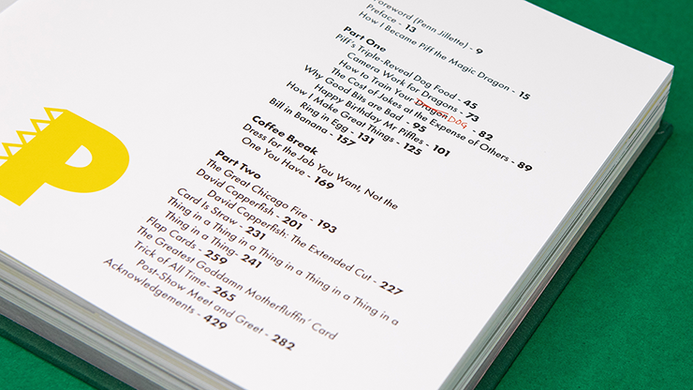 Foreword (Penn Jillette) - 9
Preface - 13
How I Became Piff the Magic Dragon - 15
Part One
Piff's Triple-Reveal Dog Food - 45
Camera Work for Dragons - 73
How to Train Your Dragon DOG - 82
The Cost of Jokes at the Expense of Others - 89
Why Good Bits are Bad - 95
Happy Birthday Mr Piffles - 101
How I Make Great Things - 125
Ring in Egg - 131
Bill in Banana - 157
Coffee Break
Dress for the Job You Want, Not the
One You Have - 169
Part Two
The Great Chicago Fire - 193
David Copperfish - 201
David Copperfish: The Extended Cut - 227
Card Is Straw - 231
Thing in a Thing in a Thing in a Thing in a Thing in a
Thing in a Thing- 241
Flap Cards - 259
The Greatest Goddamn Motherfluffin' Card
Trick of All Time- 265
Post-Show Meet and Greet - 282
Acknowledgements - 429
P